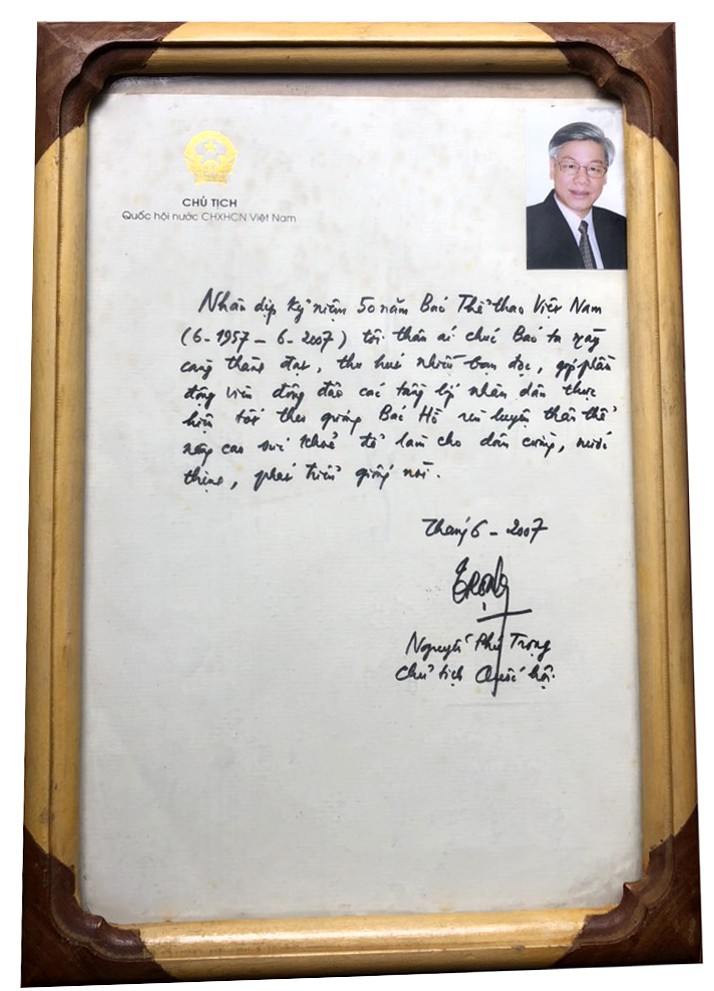 CHỦ TỊCH
Quốc hội nước CHXHCN Việt Nam
Nhân dịp kỷ niệm 50 năm Báo Thể thao Việt Nam
(6-1957 - 6-2007) tôi thân ái chúc Báo ta ngày
càng thành đạt, thu hút nhiều bạn đọc, góp phần
động viên đông đảo các tầng lớp nhân dân thực
hiện tốt theo gương Bác Hồ rèn luyện thân thể
nâng cao sức khoẻ để làm cho dân cường, nước
thịnh, phát triển giống nòi.
Tháng 6 - 2007
TRỌNG
Nguyễn Phú Trọng
Chủ tịch Quốc hội.